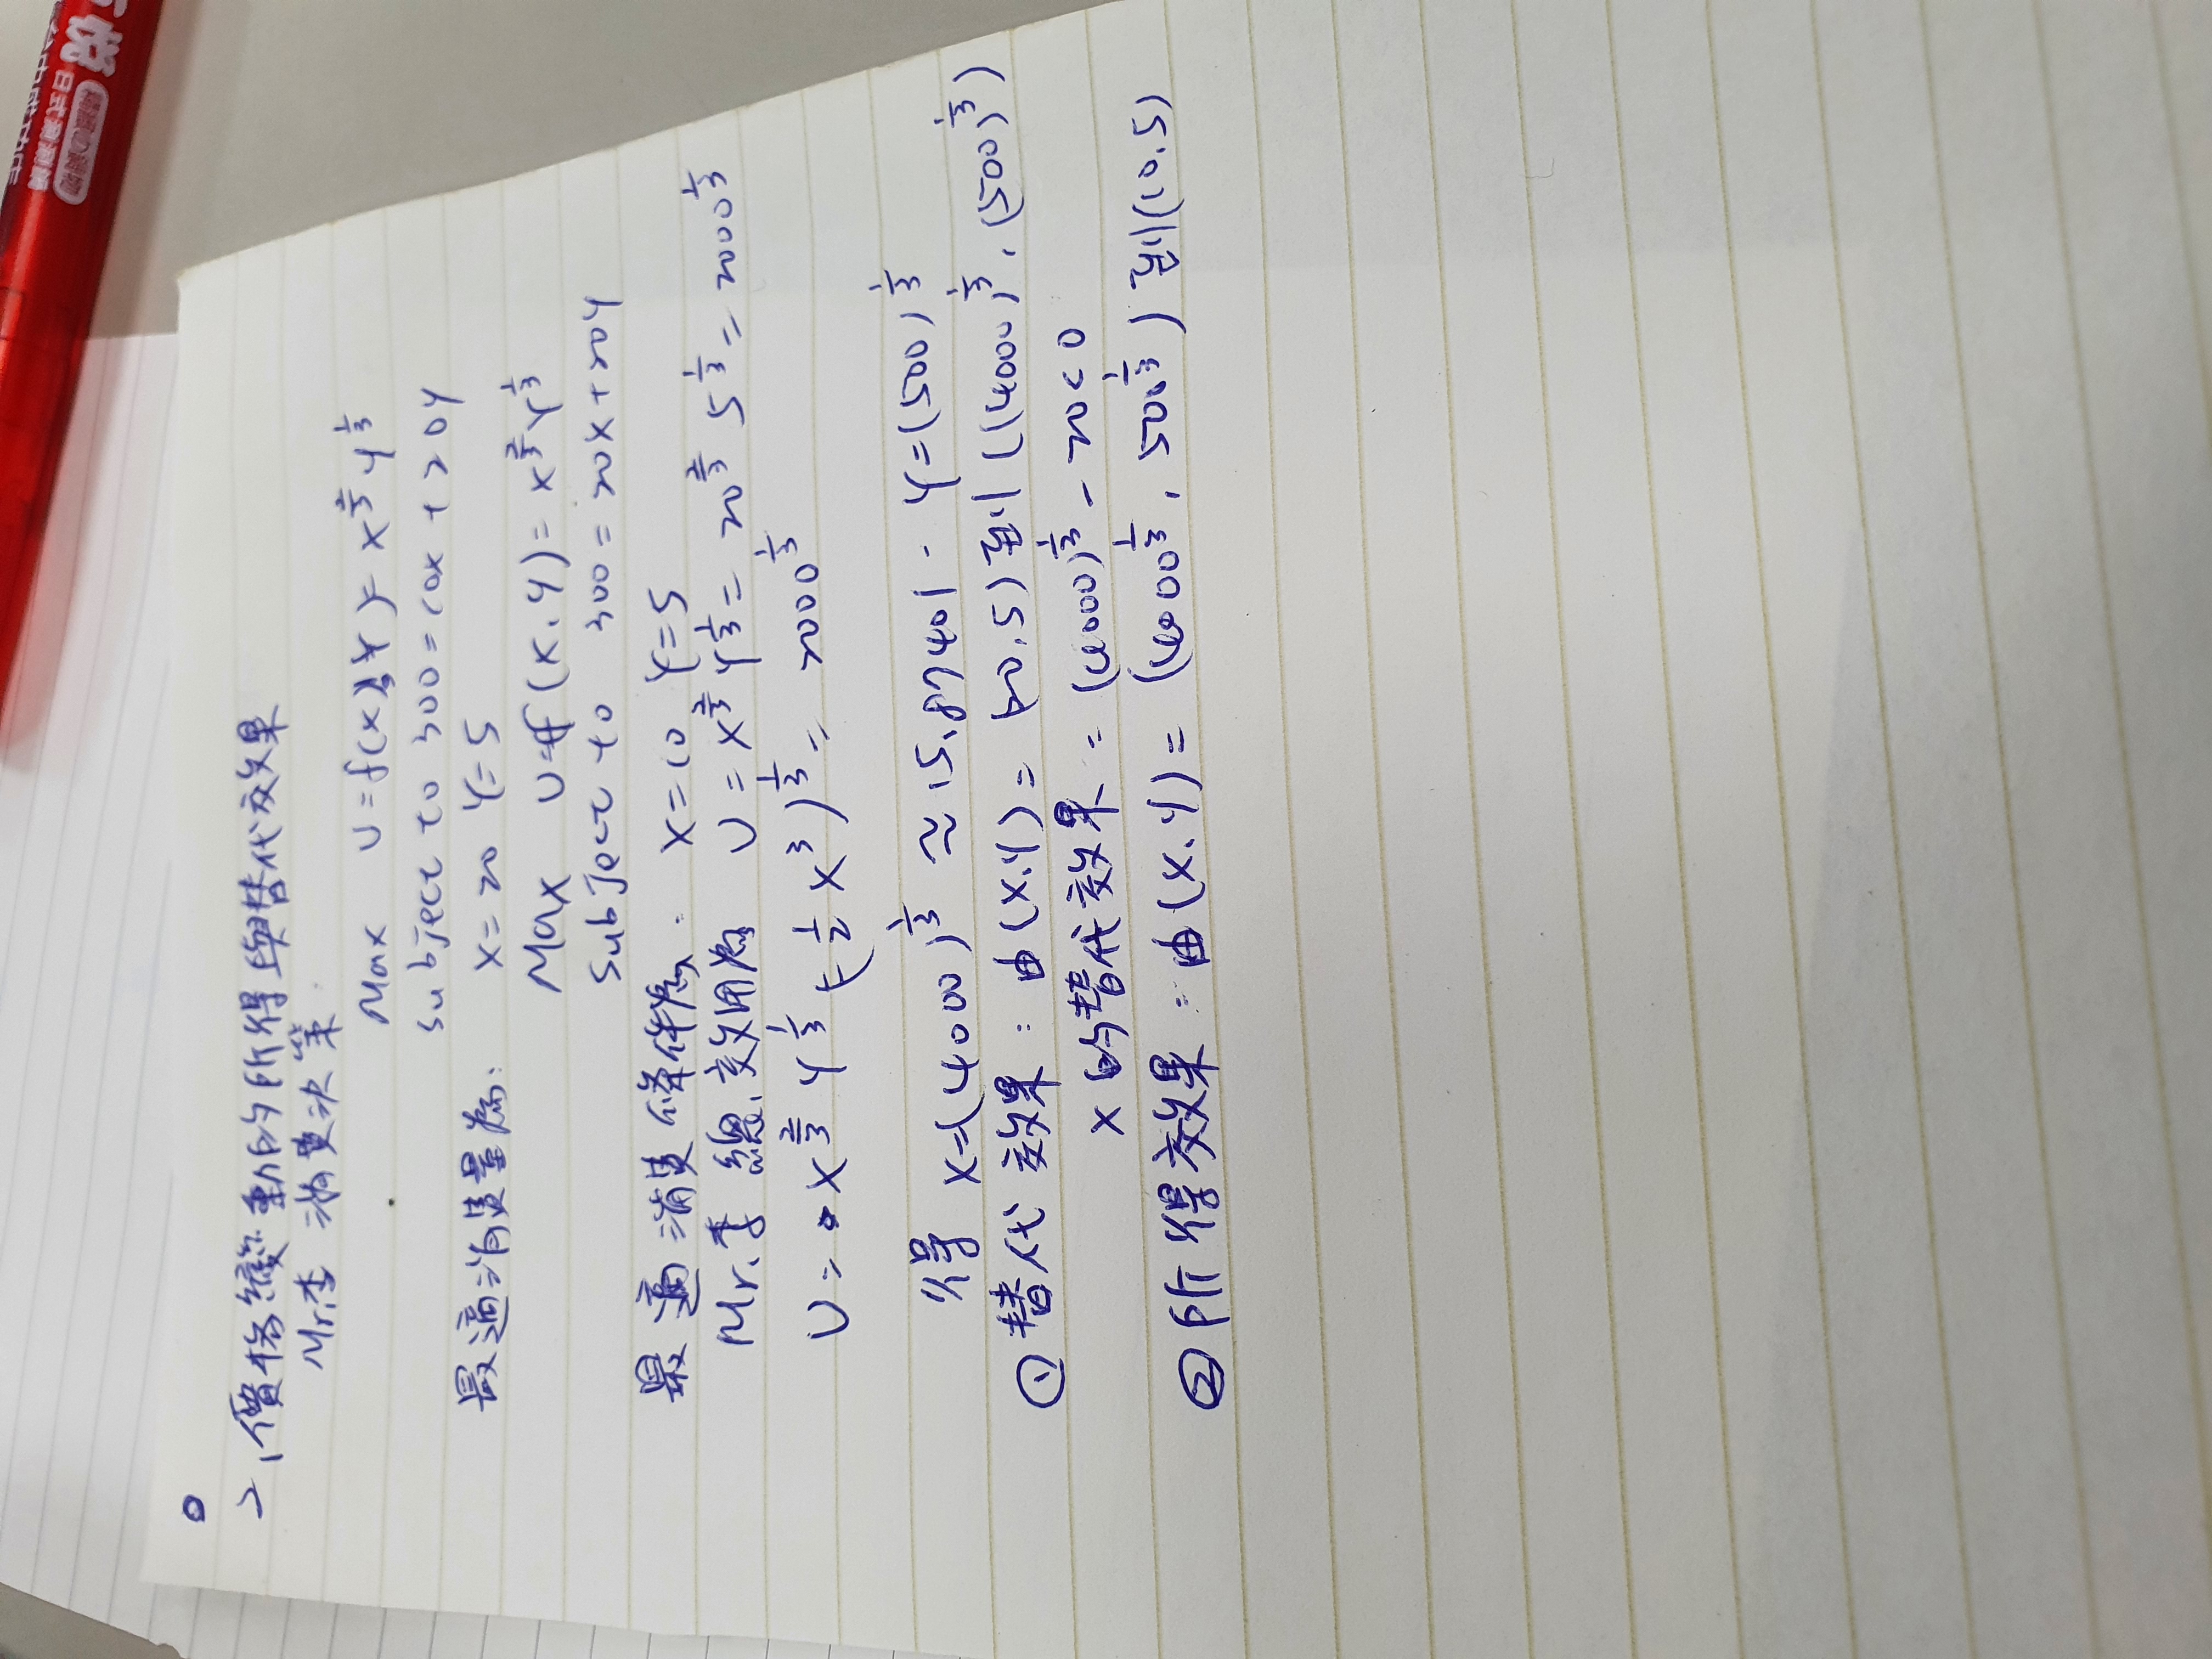 2、價格變動的所得與替代效果
Mr.李 消費決策
Max U=f(x,Y)= x^{2/3} y^{1/3}
subject to 300=10x+20y
最適消費量為: x=20 Y=5
Max U=f(x.y)= x^{2/3} Y^{1/3}
subject to 300=20x+20y
最適消費條件為. x=10 Y=5
Mr.李 總效用為 U=x^{2/3} Y^{1/3}= 20^{2/3} 5^{1/3}=2000^{1/3}
U=x^{2/3} Y^{1/3}=(1/2 x^3)^{1/3}=2000^{1/3}
得 x=(4000)^{1/3}≈15.87401 - Y=(500)^{1/3}
①替代效果:由(x.y)=(20.5)到((4000)^{1/3}.(500)^{1/3})
x的替代效果=(4000)^{1/3}-20<0
②所得效果:由(x.y)=(4000^{1/3},500^{1/3})到(10.5)
日式